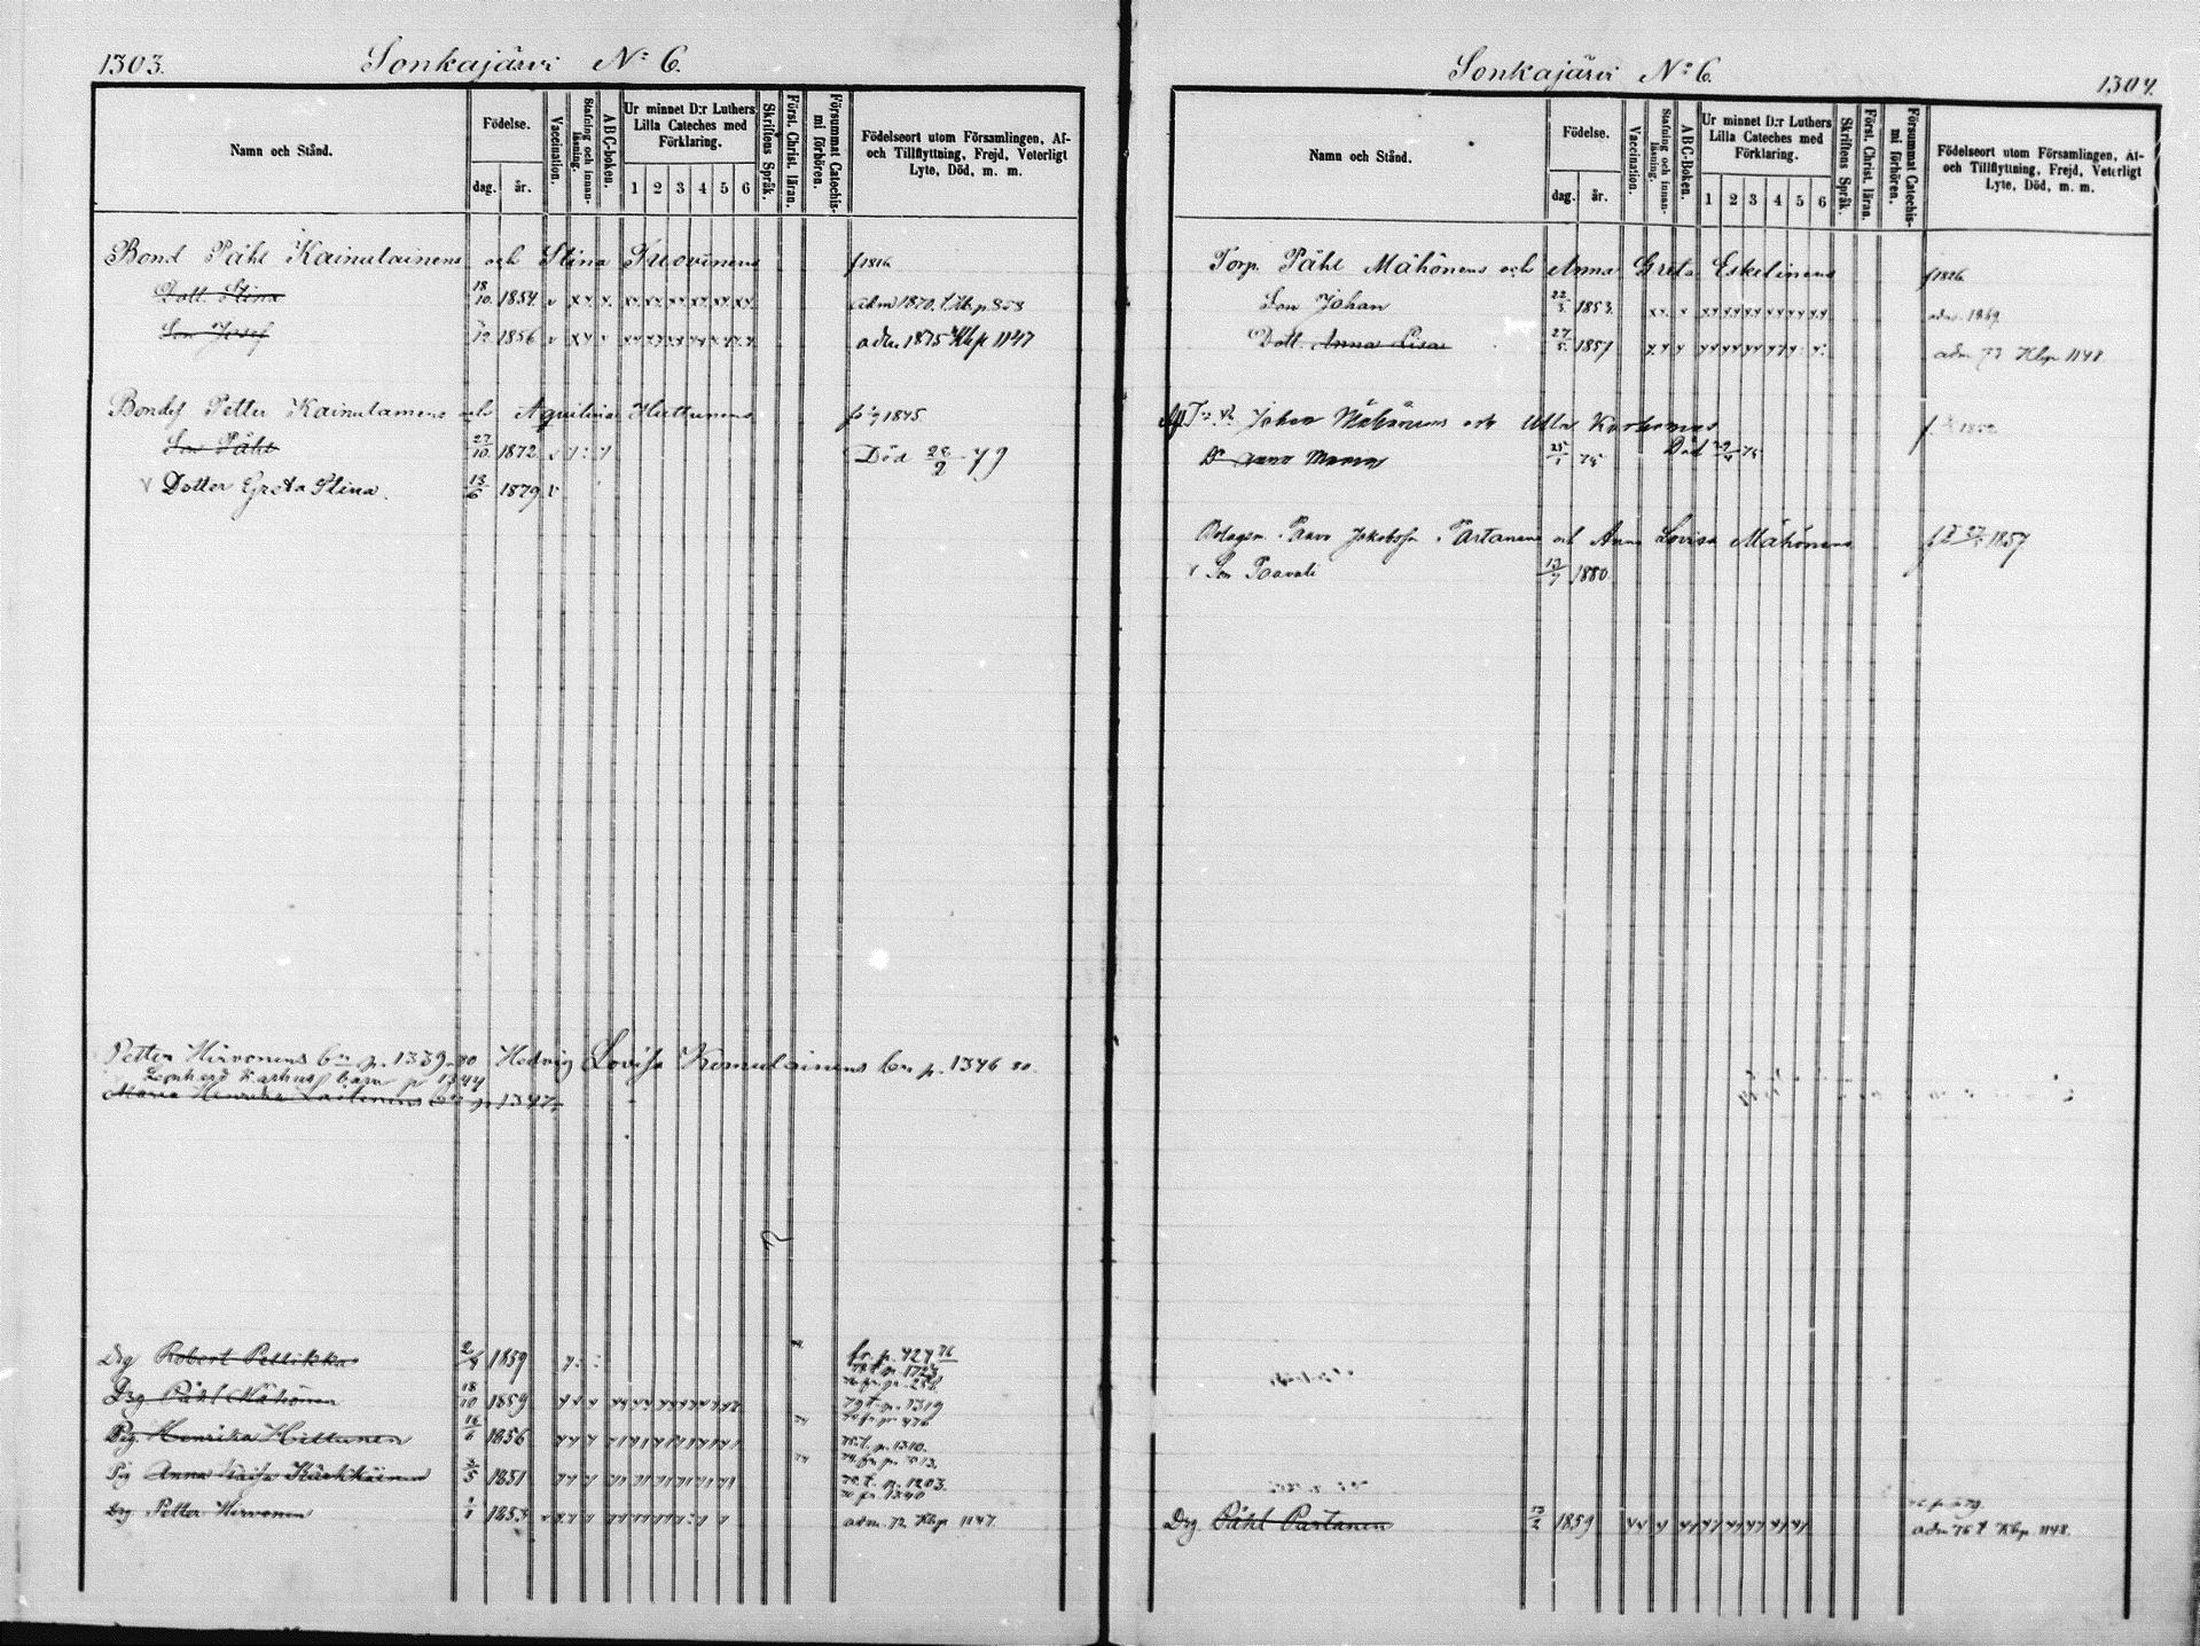 1303. Sonkajärvi N:o 6.
Namn och Stånd.
Födelse.
dag. år.
Vaccination.
Stafning och innan-läsning.
ABC-boken.
Ur minnet D:r Luthers
Lilla Cateches med
Förklaring.
1 2 3 4 5 6
Skriftens Språk.
Först. Christ. läran.
Försummat Catechis-mi förhören.
Födelseort utom Församlingen, Af-
och Tillflyttning, Frejd, Veterligt
Lyte, Död, m. m.
Bond Påhl Kainulainens och Stina Tuovinens f 1816
Dott. Stina 18/10 1854 adm 1870. t. Kb. p. 858
Son Josef 1856 adm 1875 Kbp 1147
Bondes Petter Kainulainens och Aqvilina Huttunens 1845.
Son Påhl 27/10 1872 Död 28/2 79
Dotter Greta Stina. 13/6 1879 v
Petter Hirvonens bn p. 1339. 80 Hedvig Lovisa Kemulainens bn p. 1346 80.
Leonhard Karhus barn p 1344
Maria Henrika Laitinens bn p 1347
Drg Robert Pellikka 2/4 1859 fr. p. 424 76
t. p. 1724
Drg Påhl Mähönen 18/10 1859 fr. p. 258
79 t. p. 1319
Pig. Henrika Hiltunen 16/6 1856 fr p 476
75. t. p. 1310.
Pig Anna Kaisa Kärkkäinen 3/5 1851 fr. p.
t. p. 1203.
Drg Petter Hirvonen 1853 fr. 1340
adm. 72 Kbp 1147.
Sonkajärvi N:o 6. 1304.
Namn och Stånd.
Födelse.
dag. år.
Vaccination.
Stafning och innan-läsning.
ABC-Boken.
Ur minnet D:r Luthers
Lilla Cateches med
Förklaring.
1 2 3 4 5 6
Skriftens Språk.
Först. Christ. läran.
Försummat Catechis-mi förhören.
Födelseort utom Församlingen, Af-
och Tillflyttning, Frejd, Veterligt
Lyte, Död, m. m.
Torp. Påhl Mähönens och Anna Greta Eskelinens f 1826
Son Johan 22/3 1853. adm. 1869
Dott. Anna Lisa 27/5 1857 adm 73 Kbp 1148
Johan Mähönens och Ulla Korhonens f 1852
Dr Anna Maria 25/1 75 Död 75
Bolagsm. Paavo Jakobsson Partanens och Anna Lovisa Mähönens 1857
Son Paavali 13/7 1880.
Drg Påhl Partanen 1859 adm 76 t Kbp 1148.